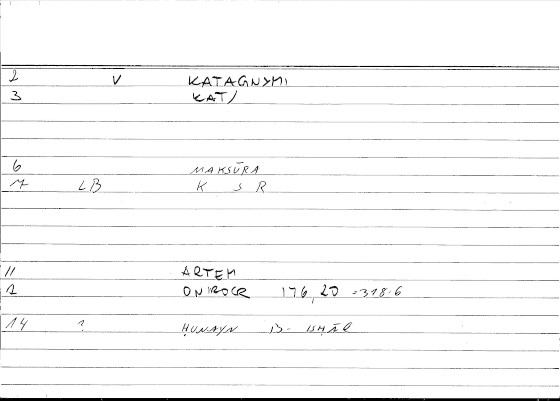 2 V KATAGNYMI
3 KAT/
6 MAKSŪRA
7 LB K S R
11 ARTEM
1 ONIROCR 176,20 =318.6
14 ? ḤUNAYN B- ISḤĀQ